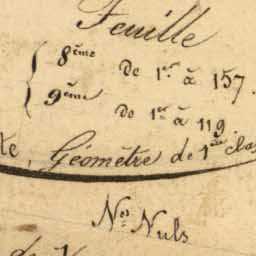 Feuille
8ème de 1er à 157.
9ème de 1er à 119
Géomètre de 1ère
Nos Nuls